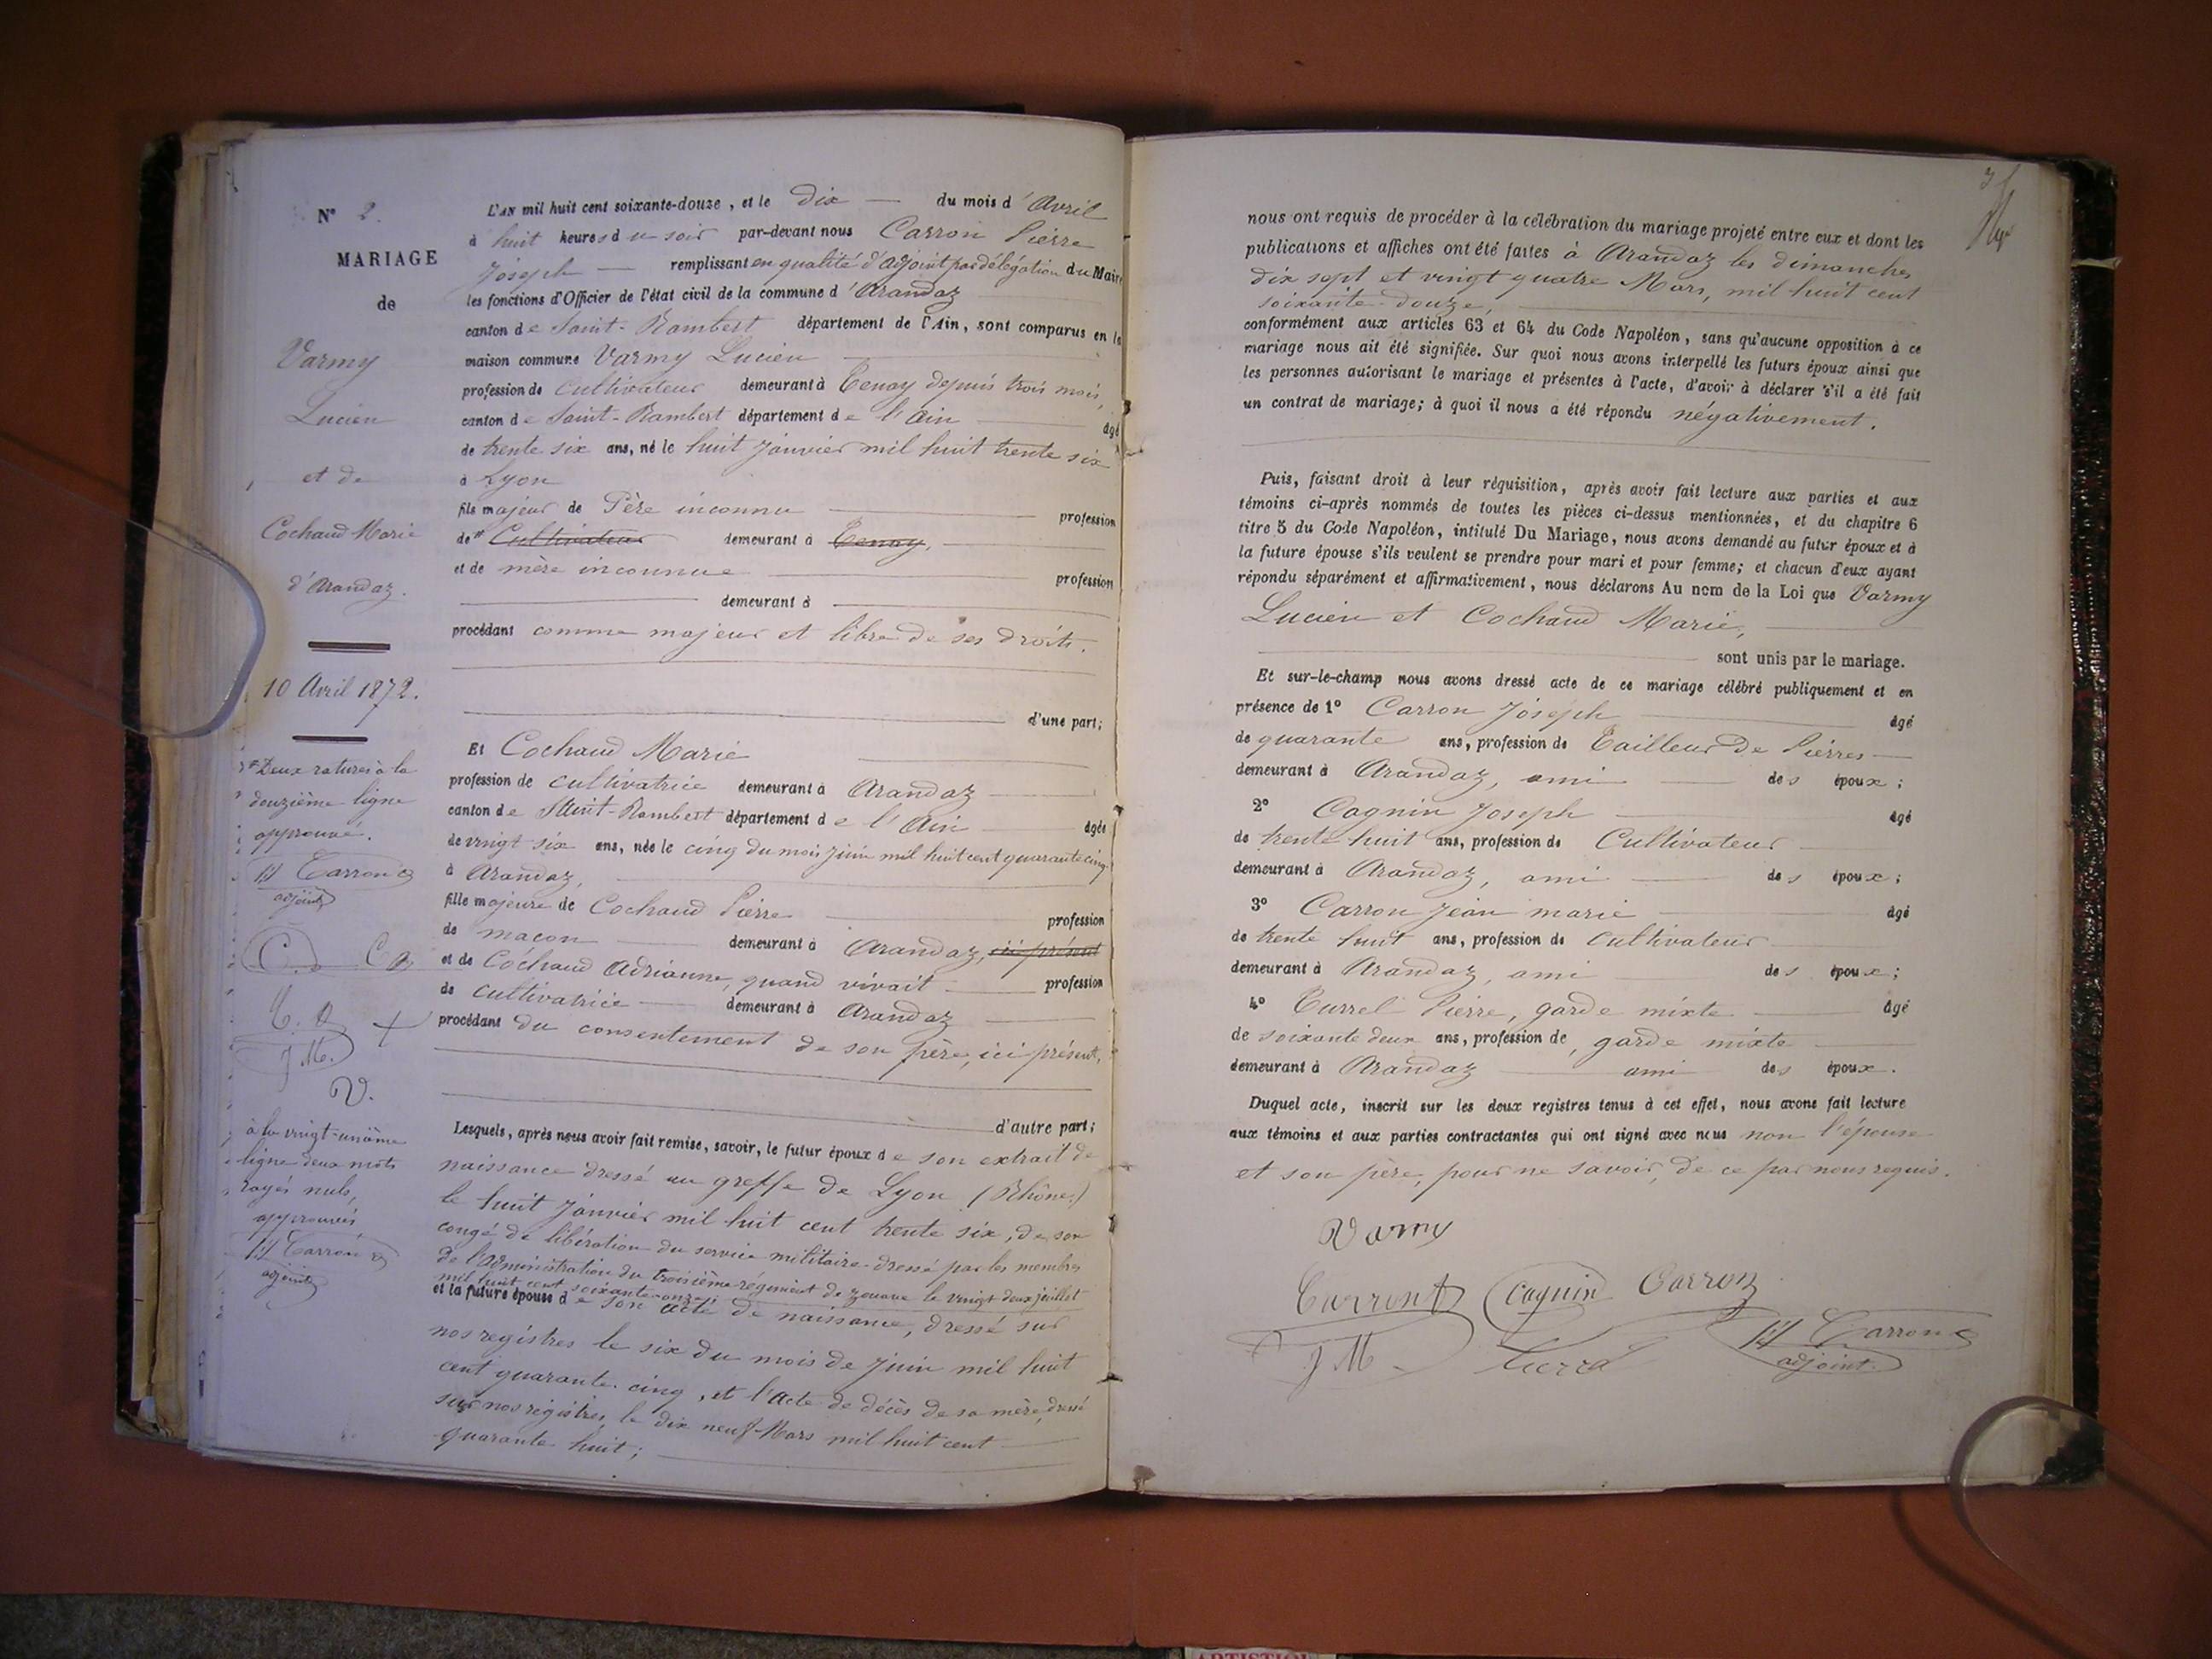 N° 2.
MARIAGE
de
Varmy
Lucien
et de
Cochaud Marie
d'Arandaz.
10 Avril 1872.
Deux ratures à la
douzième ligne
approuvé.
Carron
adjoint
C. C
J M.
V.
à la vingt-unième
ligne deux mots
rayés nuls,
approuvés
Carron
adjoint
L'AN mil huit cent soixante-douze, et le Dix du mois d'Avril
à huit heures du soir par-devant nous Carron Pierre
Joseph remplissant en qualité d'adjoint par délégation du Maire
les fonctions d'Officier de l'état civil de la commune d'Arandaz
canton de Saint-Rambert département de l'Ain, sont comparus en la
maison commune Varmy Lucien
profession de Cultivateur demeurant à Tenay depuis trois mois,
canton de Saint-Rambert département de l'Ain âgé
de trente six ans, né le huit Janvier mil huit trente six
à Lyon
fils majeur de Père inconnu profession
de Cultivateur demeurant à Tenay,
et de mère inconnue profession
demeurant à
procédant comme majeur et libre de ses droits.
d'une part;
Et Cochaud Marie
profession de cultivatrice demeurant à Arandaz
canton de Saint-Rambert département de l'Ain âgée
de vingt six ans, née le cinq du mois Juin mil huit cent quarante cinq
à Arandaz,
fille majeure de Cochaud Pierre profession
de maçon demeurant à Arandaz, ici présent
et de Cochaud Adrianne, quand vivait profession
de cultivatrice demeurant à Arandaz
procédant du consentement de son père, ici présent,
d'autre part;
Lesquels, après nous avoir fait remise, savoir, le futur époux de son extrait de
naissance dressé au greffe de Lyon (Rhône)
le huit Janvier mil huit cent trente six, de son
congé de libération du service militaire dressé par les membres
de l'administration du troisième régiment de zouave le vingt deux juillet
mil huit cent soixante-onze
et la future épouse de son acte de naissance, dressé sur
nos registres le six du mois de Juin mil huit
cent quarante-cinq, et l'acte de décès de sa mère, dressé
sur nos registres, le dix neuf Mars mil huit cent
quarante huit;
nous ont requis de procéder à la célébration du mariage projeté entre eux et dont les
publications et affiches ont été faites à Arandaz les dimanches
dix sept et vingt quatre Mars, mil huit cent
soixante-douze,
conformément aux articles 63 et 64 du Code Napoléon, sans qu'aucune opposition à ce
mariage nous ait été signifiée. Sur quoi nous avons interpellé les futurs époux ainsi que
les personnes autorisant le mariage et présentes à l'acte, d'avoir à déclarer s'il a été fait
un contrat de mariage; à quoi il nous a été répondu négativement.
Puis, faisant droit à leur réquisition, après avoir fait lecture aux parties et aux
témoins ci-après nommés de toutes les pièces ci-dessus mentionnées, et du chapitre 6
titre 5 du Code Napoléon, intitulé Du Mariage, nous avons demandé au futur époux et à
la future épouse s'ils veulent se prendre pour mari et pour femme; et chacun d'eux ayant
répondu séparément et affirmativement, nous déclarons Au nom de la Loi que Varmy
Lucien et Cochaud Marie,
sont unis par le mariage.
Et sur-le-champ nous avons dressé acte de ce mariage célébré publiquement et en
présence de 1° Carron Joseph âgé
de quarante ans, profession de Tailleur de Pierres
demeurant à Arandaz, ami des époux;
2° Cagnin Joseph âgé
de trente huit ans, profession de Cultivateur
demeurant à Arandaz, ami des époux;
3° Carron Jean marie âgé
de trente huit ans, profession de Cultivateur
demeurant à Arandaz, ami des époux;
4° Turrel Pierre, garde mixte âgé
de soixante deux ans, profession de garde mixte
demeurant à Arandaz ami des époux.
Duquel acte, inscrit sur les deux registres tenus à cet effet, nous avons fait lecture
aux témoins et aux parties contractantes qui ont signé avec nous non l'épouse
et son père, pour ne savoir, de ce par nous requis.
Varmy
Cagnin Carron
J M Carron
adjoint.